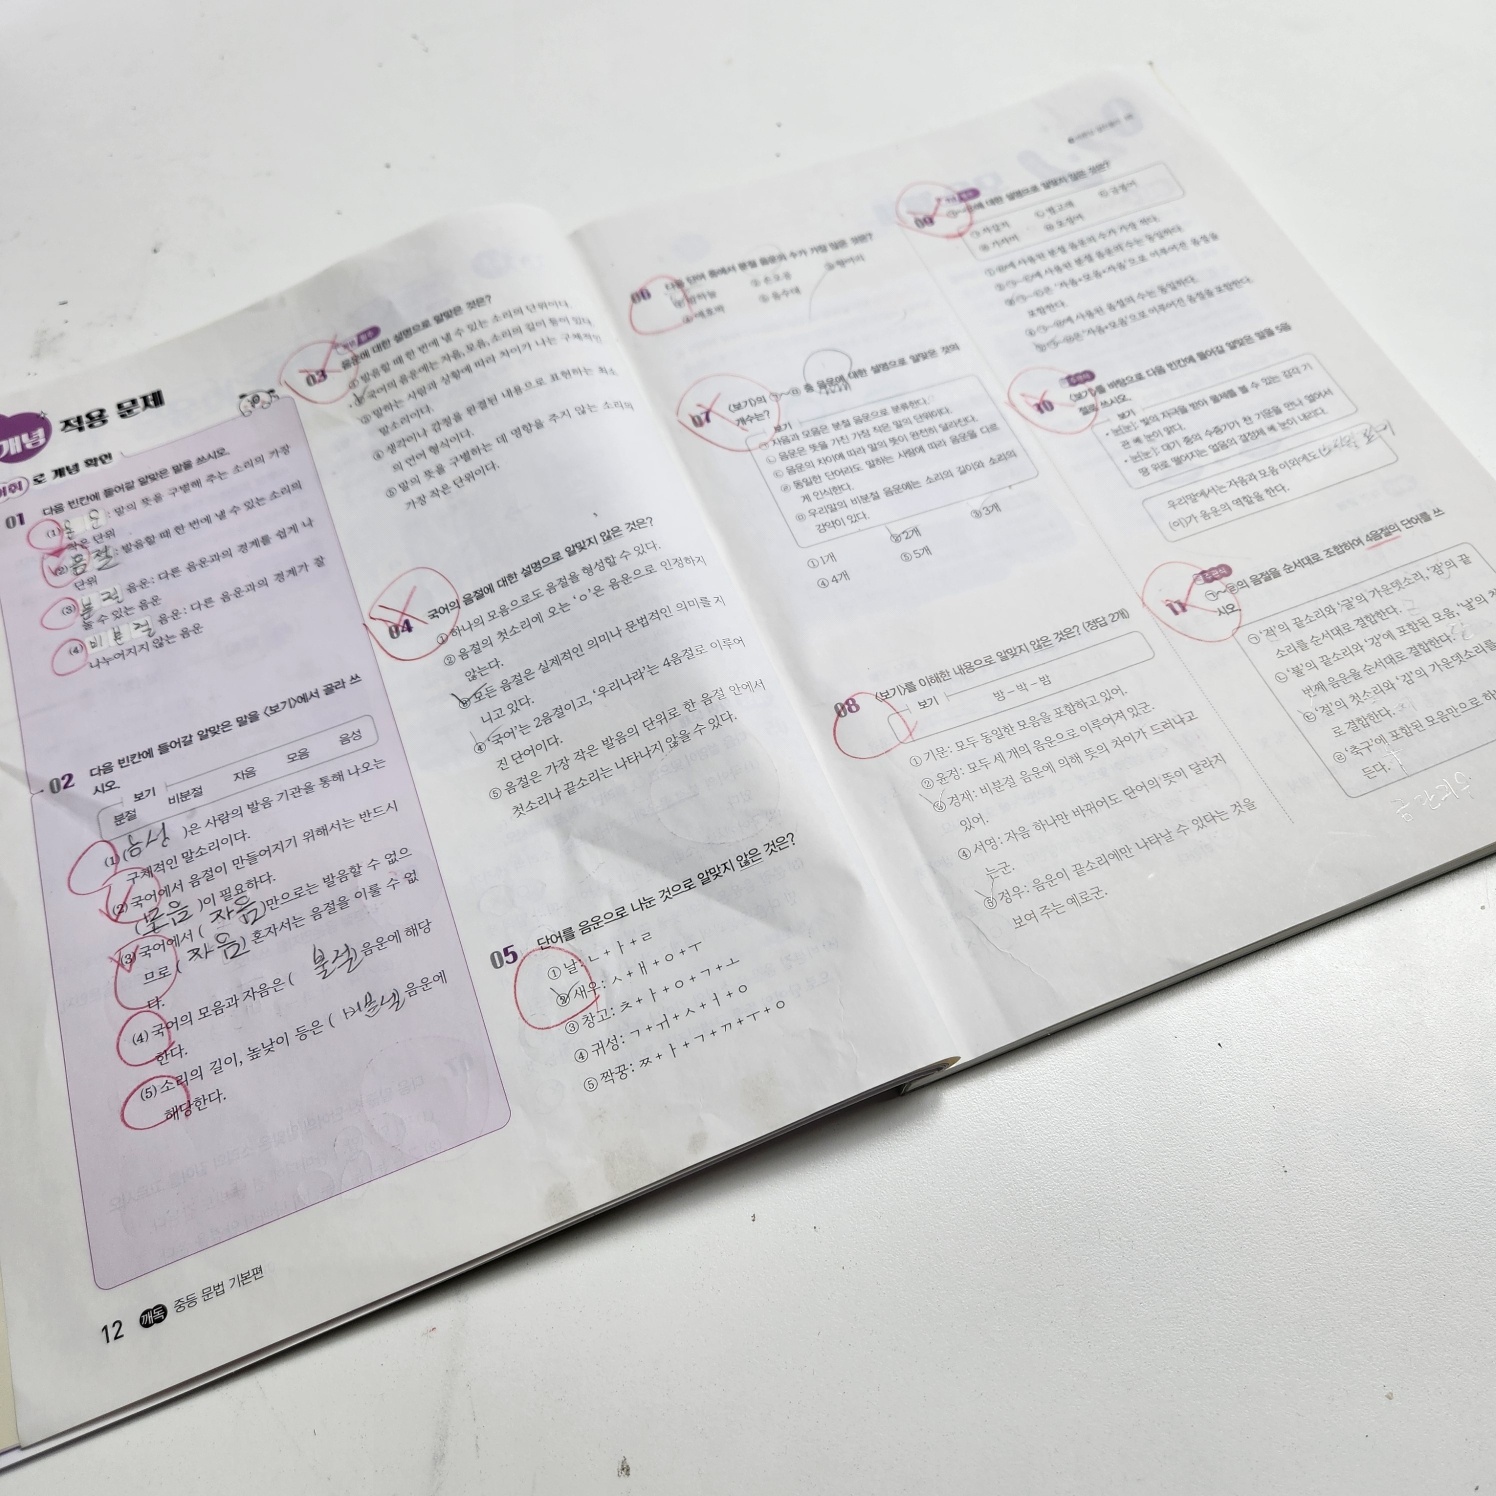 개념 적용 문제
로 개념 확인
01 다음 빈칸에 들어갈 알맞은 말을 쓰시오.
(1) 음운 : 말의 뜻을 구별해 주는 소리의 가장
작은 단위
(2) 음절 : 발음할 때 한 번에 낼 수 있는 소리의
단위
(3) 분절 음운: 다른 음운과의 경계를 쉽게 나
눌 수 있는 음운
(4) 비분절 음운: 다른 음운과의 경계가 잘
나누어지지 않는 음운
02 다음 빈칸에 들어갈 알맞은 말을 <보기>에서 골라 쓰
시오.
보기
분절 비분절 자음 모음 음성
(1) (음성)은 사람의 발음 기관을 통해 나오는
구체적인 말소리이다.
(2) 국어에서 음절이 만들어지기 위해서는 반드시
(모음)이 필요하다.
(3) 국어에서 (자음)만으로는 발음할 수 없으
므로 (자음) 혼자서는 음절을 이룰 수 없
다.
(4) 국어의 모음과 자음은 (분절) 음운에 해당
한다.
(5) 소리의 길이, 높낮이 등은 (비분절) 음운에
해당한다.
12 깨독 중등 문법 기본편
03
음운에 대한 설명으로 알맞은 것은?
① 발음할 때 한 번에 낼 수 있는 소리의 단위이다.
② 국어의 음운에는 자음, 모음, 소리의 길이 등이 있다.
③ 말하는 사람과 상황에 따라 차이가 나는 구체적인
말소리이다.
④ 생각이나 감정을 완결된 내용으로 표현하는 최소
의 언어 형식이다.
⑤ 말의 뜻을 구별하는 데 영향을 주지 않는 소리의
가장 작은 단위이다.
04 국어의 음절에 대한 설명으로 알맞지 않은 것은?
① 하나의 모음으로도 음절을 형성할 수 있다.
② 음절의 첫소리에 오는 'ㅇ'은 음운으로 인정하지
않는다.
③ 모든 음절은 실제적인 의미나 문법적인 의미를 지
니고 있다.
④ '국어'는 2음절이고, '우리나라'는 4음절로 이루어
진 단어이다.
⑤ 음절은 가장 작은 발음의 단위로 한 음절 안에서
첫소리나 끝소리는 나타나지 않을 수 있다.
05 단어를 음운으로 나눈 것으로 알맞지 않은 것은?
① 날: ㄴ+ㅏ+ㄹ
② 새우: ㅅ+ㅐ+ㅇ+ㅜ
③ 창고: ㅊ+ㅏ+ㅇ+ㄱ+ㅗ
④ 귀성: ㄱ+ㅟ+ㅅ+ㅓ+ㅇ
⑤ 짝꿍: ㅉ+ㅏ+ㄱ+ㄲ+ㅜ+ㅇ
06 다음 단어 중에서 분절 음운의 수가 가장 많은 것은?
② 손오공
④ 애호박 ⑤ 옥수대
07 <보기>의 ㉠~㉤ 중 음운에 대한 설명으로 알맞은 것의
개수는?
보기
㉠ 자음과 모음은 분절 음운으로 분류한다.
㉡ 음운은 뜻을 가진 가장 작은 말의 단위이다.
㉢ 음운의 차이에 따라 말의 뜻이 완전히 달라진다.
㉣ 동일한 단어라도 말하는 사람에 따라 음운을 다르
게 인식한다.
㉤ 우리말의 비분절 음운에는 소리의 길이와 소리의
강약이 있다.
① 1개 ② 2개 ③ 3개
④ 4개 ⑤ 5개
08 <보기>를 이해한 내용으로 알맞지 않은 것은? (정답 2개)
보기
밤 - 박 - 밥
① 기문: 모두 동일한 모음을 포함하고 있어.
② 윤정: 모두 세 개의 음운으로 이루어져 있군.
③ 경재: 비분절 음운에 의해 뜻의 차이가 드러나고
있어.
④ 서영: 자음 하나만 바뀌어도 단어의 뜻이 달라지
는군.
⑤ 경우: 음운이 끝소리에만 나타날 수 있다는 것을
보여 주는 예로군.
09 ㉠~㉥에 대한 설명으로 알맞지 않은 것은?
10 <보기>를 바탕으로 다음 빈칸에 들어갈 알맞은 말을 5음
절로 쓰시오.
보기
• 눈[눈]: 빛의 자극을 받아 물체를 볼 수 있는 감각 기
관 예 눈이 맑다.
• 눈[눈ː]: 대기 중의 수증기가 찬 기운을 만나 얼어서
땅 위로 떨어지는 얼음의 결정체 예 눈이 내리다.
우리말에서는 자음과 모음 이외에도 (
(이)가 음운의 역할을 한다.
11 ㉠~㉣의 음절을 순서대로 조합하여 4음절의 단어를 쓰
시오.
㉠ '적'의 끝소리와 '글'의 가운뎃소리, '잠'의 끝
소리를 순서대로 결합한다.
㉡ '불'의 끝소리와 '강'에 포함된 모음, '날'의 첫
번째 음운을 순서대로 결합한다.
㉢ '절'의 첫소리와 '김'의 가운뎃소리를
로 결합한다.
㉣ '축구'에 포함된 모음만으로
든다.